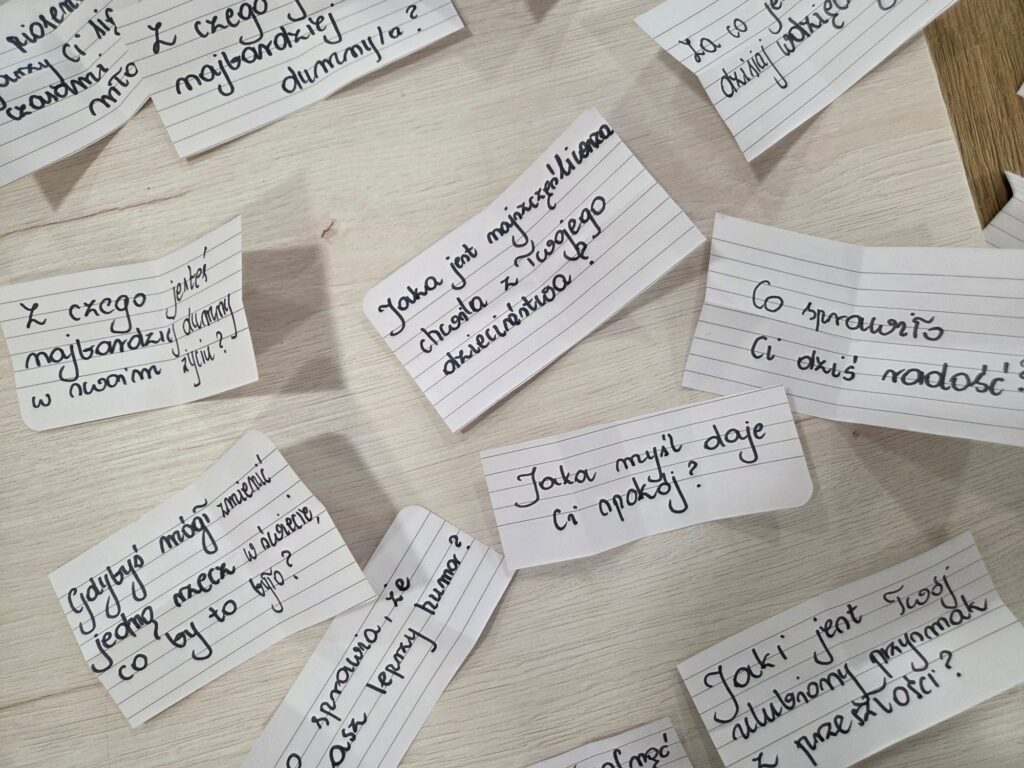 Ci się
czasami
miło
Z czego
najbardziej
dumny/a?
Za co
dzisiaj
Z czego jesteś
najbardziej dumny
w swoim życiu?
Jaka jest najszczęśliwsza
chwila z Twojego
dzieciństwa?
Co sprawiło
Ci dziś radość?
Jaka myśl daje
Ci spokój?
Gdybyś mógł zmienić
jedną rzecz w świecie,
co by to było?
sprawia, że
lepszy humor?
Jaki jest Twój
ulubiony przysmak
z przeszłości?